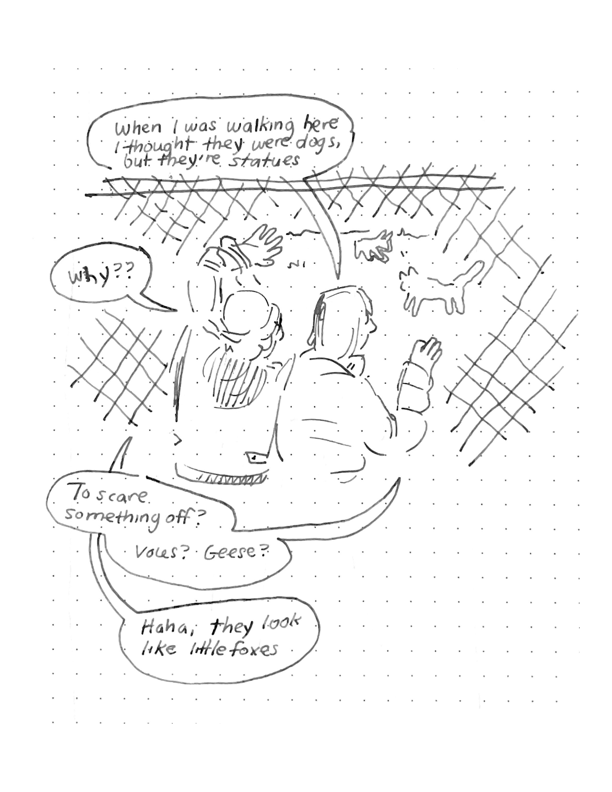 When I was walking here
I thought they were dogs,
but they're statues
Why??
To scare
something off?
Voles? Geese?
Haha, they look
like little foxes